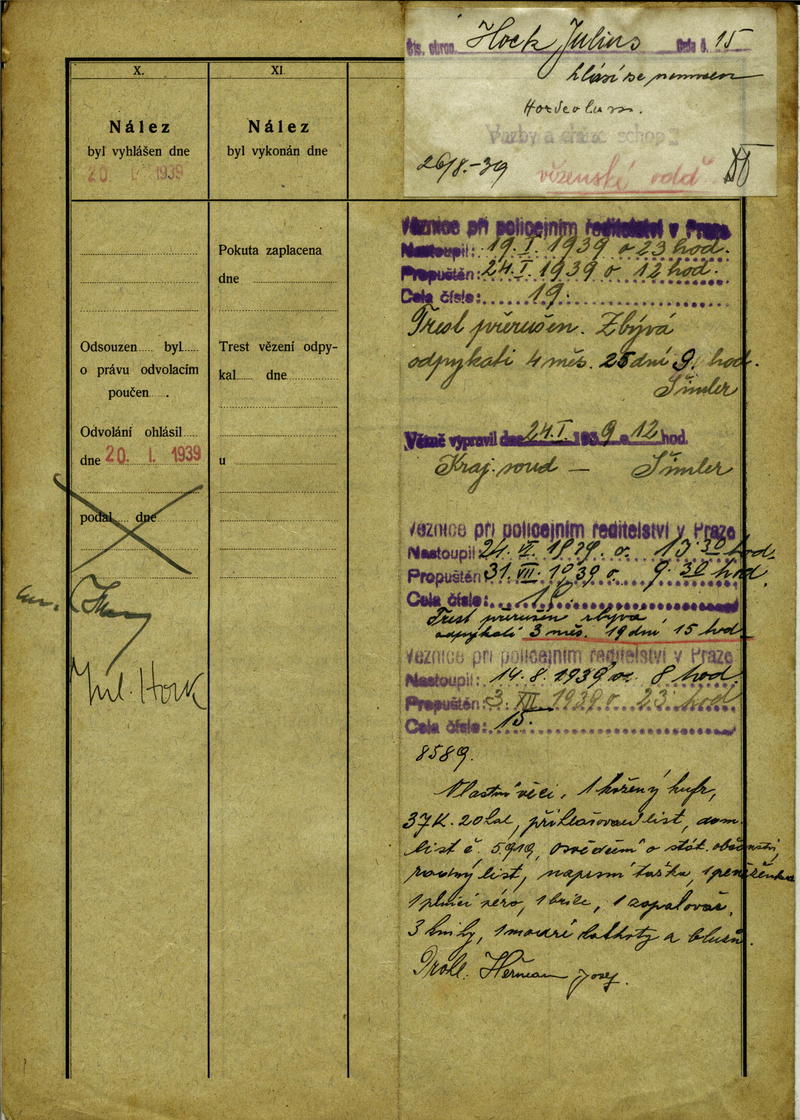 Hock Julius Cela č. 15
hlásí se nemocen
Hordeolum.
26/8.-39 vězenské odd
X.
Nález
byl vyhlášen dne
20. I. 1939
Odsouzen byl
o právu odvolacím
poučen.
Odvolání ohlásil
dne 20. I. 1939
podal dne
Jul. Hock
XI
Nález
byl vykonán dne
Pokuta zaplacena
dne
Trest vězení odpy-
kal dne
u
Věznice při policejním ředitelství v Praze
Nastoupil: 19. I. 1939 o 23 hod.
Propuštěn: 24. I. 1939 o 12 hod.
Cela číslo: 19.
Trest přerušen. Zbývá
odpykati 4 měs. 25 dní 9. hod.
Šimler
Vězně vypravil dne 24. I. 1939 o 12 hod.
Kraj. soud — Šimler
Věznice při policejním ředitelství v Praze
Nastoupil: 24. VI. 1939 o. 13 30 hod.
Propuštěn: 31. VII. 1939 o. 9. 30 hod.
Cela číslo:
Trest přerušen zbývá
odpykati 3 měs. 19 dní 15 hod.
Věznice při policejním ředitelství v Praze
Nastoupil: 14. 8. 1939 8 hod
Propuštěn: 3. XII. 1939 o. 23 hod
Cela číslo: 15.
8589.
Vlastní věci, 1 kožený kufr,
37 K. 20 hal, přihlašovací list, dom.
list č. 5919, osvědčení o stát. občanství,
rodný list, náprsní taška, 1 peněženka
1 plnící péro, 1 brýle, 1 zapalovač,
3 knihy, 1 modré kalhoty a blusu.
Prohl. Heřman Josef.